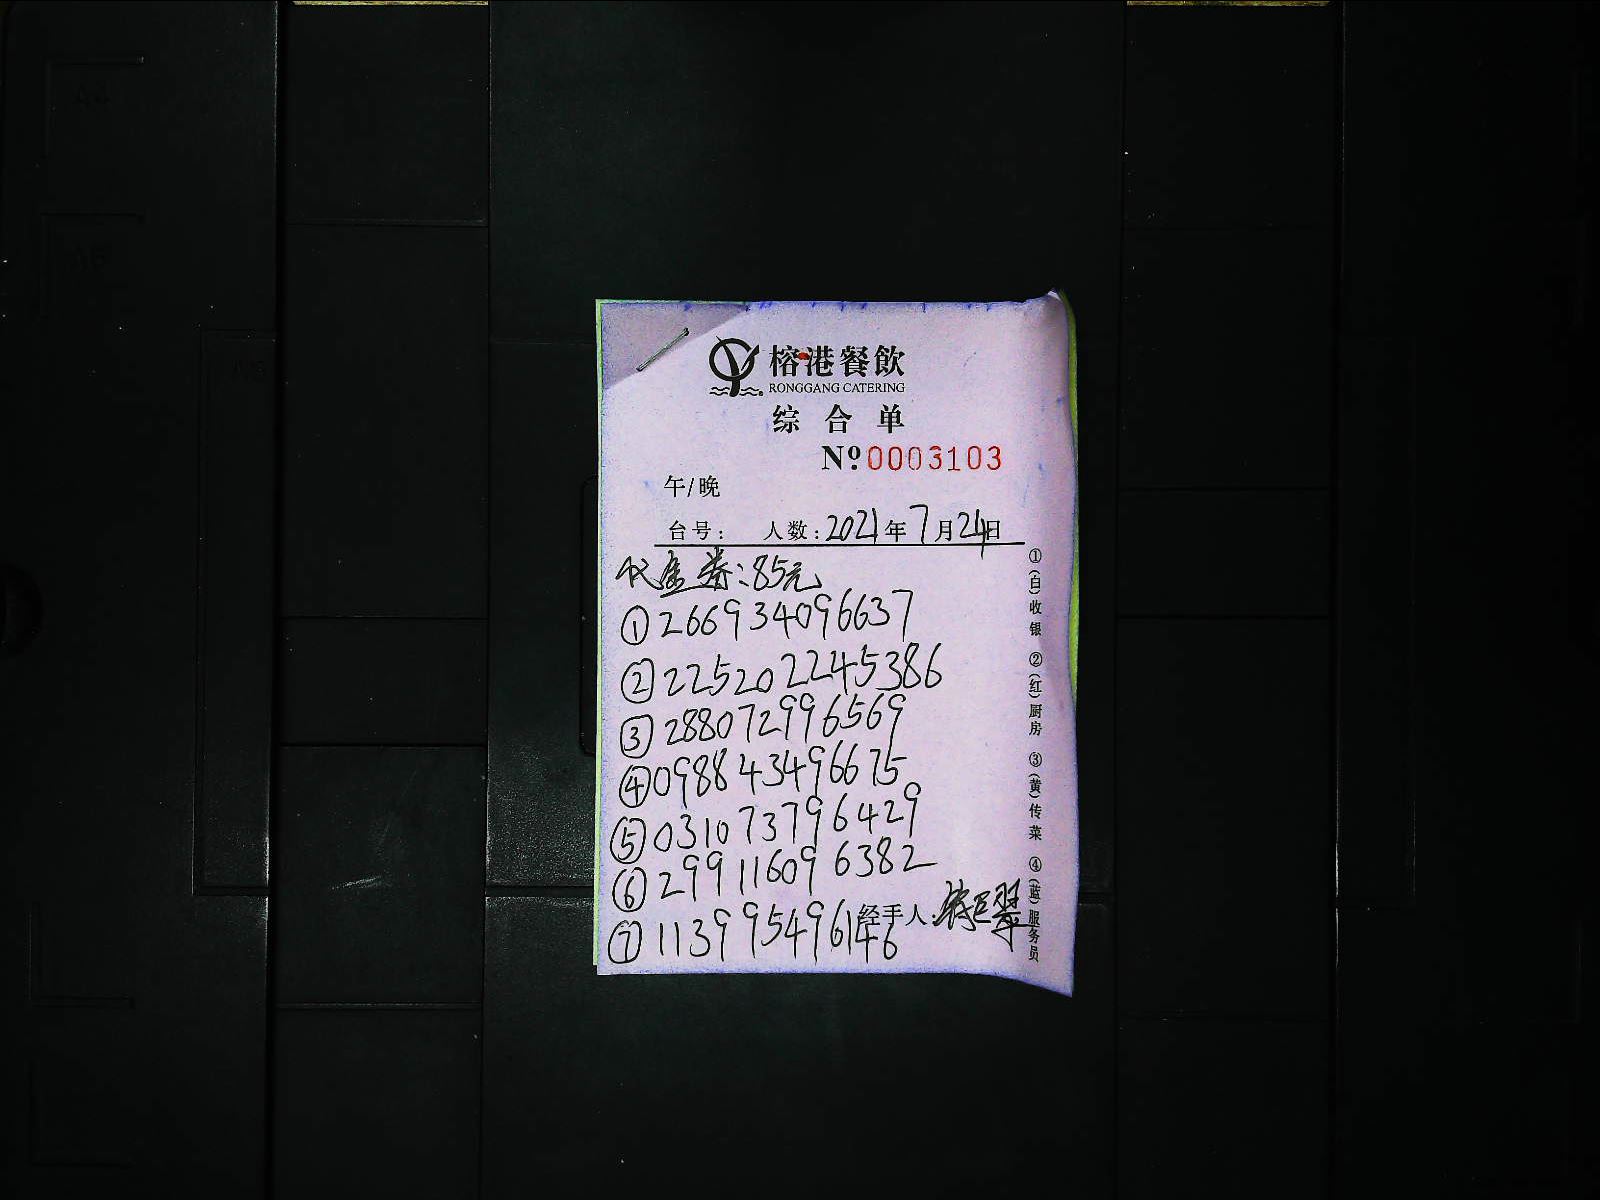 榕港餐飲
RONGGANG CATERING
综合单
Nº 0003103
午/晚
台号: 人数: 2021年7月24日
代金券:85元
①266934096637
②225202245386
③288072996569
④098843496675
⑤031073796429
⑥299116096382
⑦113995496146
经手人:
①(白)收银 ②(红)厨房 ③(黄)传菜 ④(蓝)服务员